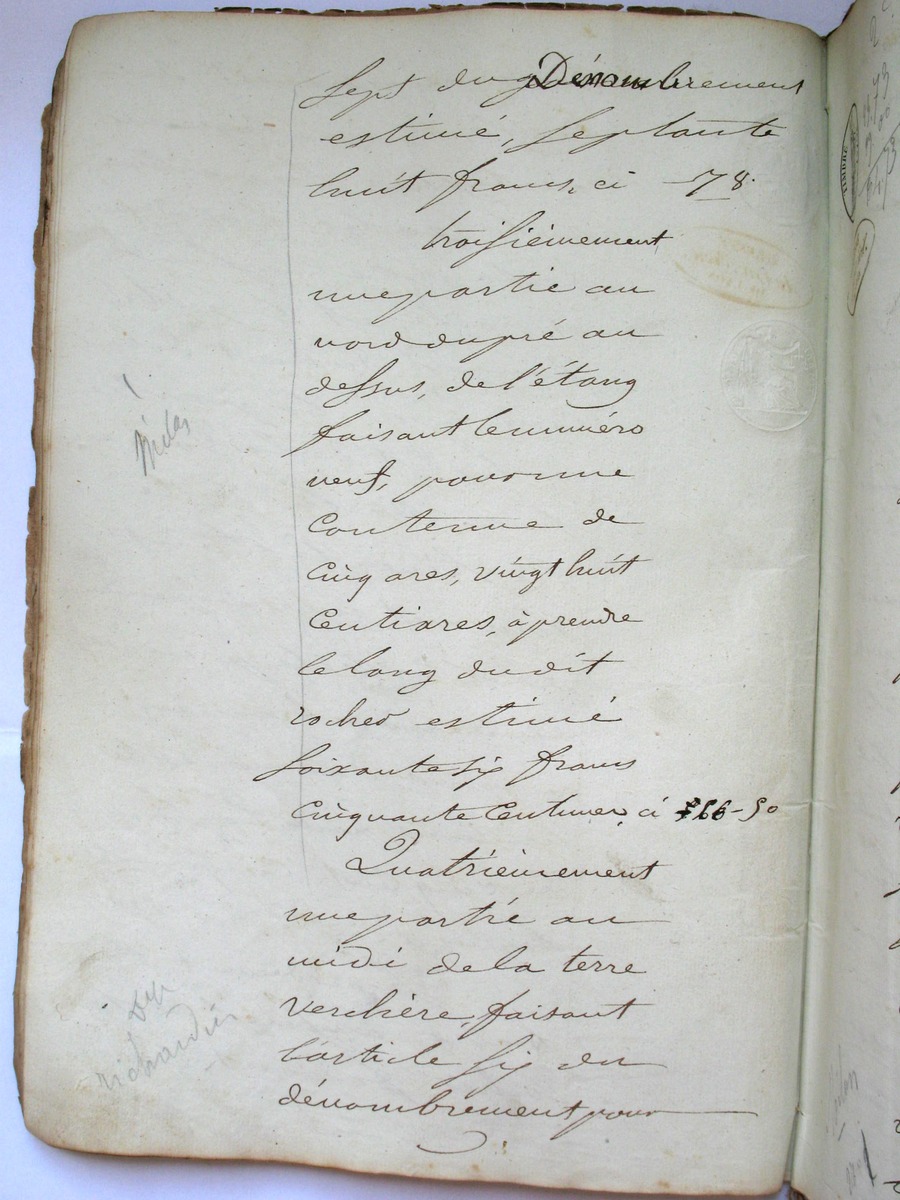 Sept du Dénombrement
estimé, Septante
huit francs, ci — 78.
troisièmement
une partie au
nord du pré au
dessus, de l'étang
faisant le numéro
neuf, pour une
Contenue de
Cinq ares, vingt huit
Centiares, à prendre
le long du dit
rocher estimé
Soixante six francs
Cinquante Centimes, ci 66-50
Quatrièmement
une partie au
midi de la terre
verchère, faisant
l'article six du
dénombrement pour
richardier
TIMBRE